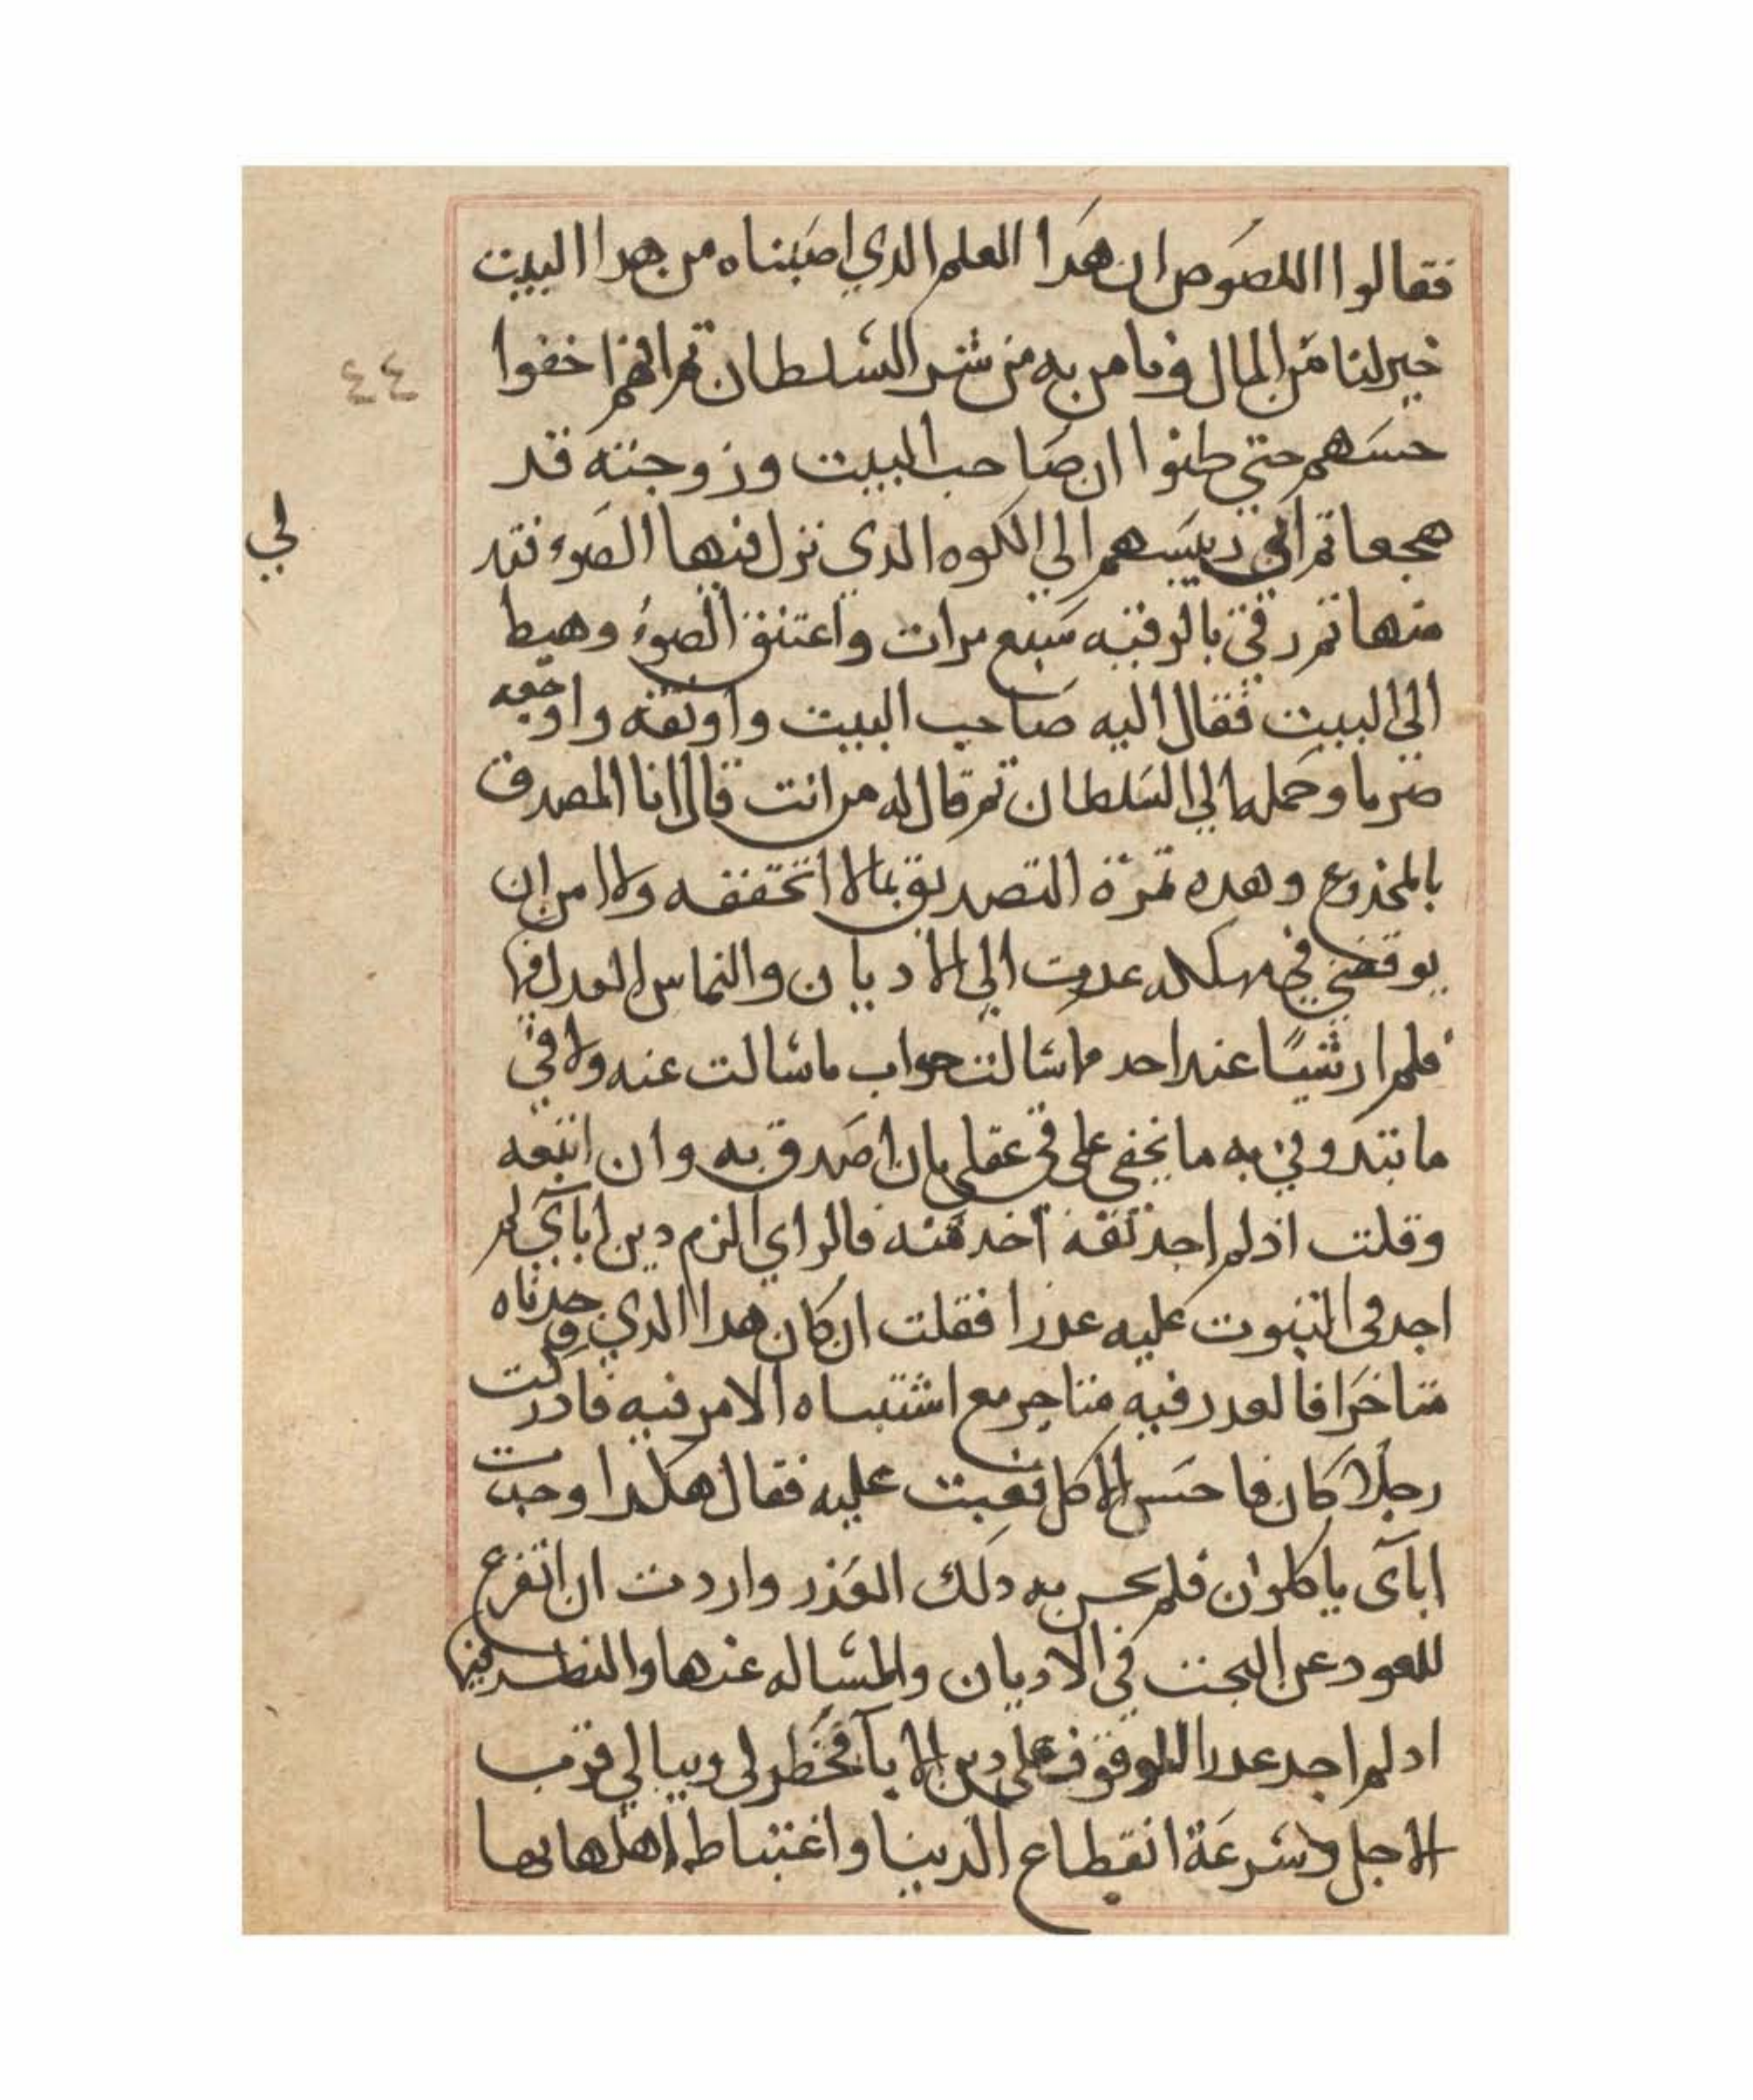 فقالوا اللصوص ان هدا العلم الدي اصبناه من هدا البيت
خير لنا من المال وما من به من شر السلطان تم انهم اخفوا
حسهم حتي طنوا ان صاحب البيت وزوجته قد
هجعا تم اتي رييسهم الي الكوه الدي نزل فيها الضوء
منها تم رقي بالرقيه سبع مرات واعتنق الضوء وهبط
الي البيت فقال اليه صاحب البيت واوثقه واوجعه
ضربا وحمله الي السلطان تم قال له من انت قال انا المصدق
بالمخدوع وهده تمرة التصديق بما لا اتحققه ولا امن ان
يوقعني في مهلكه عدت الي الاديان والتماس العدل فيها
فلم ار شيًا عند احد ما سالت جواب ما سالت عنه ولا في
ما يخفي علي في عقلي بان اصدق به وان اتبعه
وقلت اذ لم اجد ثقة آخد منه فالراي الزم دين ابآي لم
اجد في التبوت عليه عدرا فقلت ان كان هدا الدي وجدناه
فالعدر فيه مع اشتباه الامر فيه فادركت
رجلا كان فاحس الاكل فعبت عليه فقال هكدا وجدت
ابآى ياكلوان فلم يحس به دلك العذر واردت ان اتفرع
للعود عن البحت في الاديان والمساله عنها والنطر فيها
ادلم اجد عدرا للوقوف علي دين الابآ فخطر لي وببالي قرب
الاجل وسرعة انقطاع الدنيا واغتباط اهلها بها
٤٤
لي